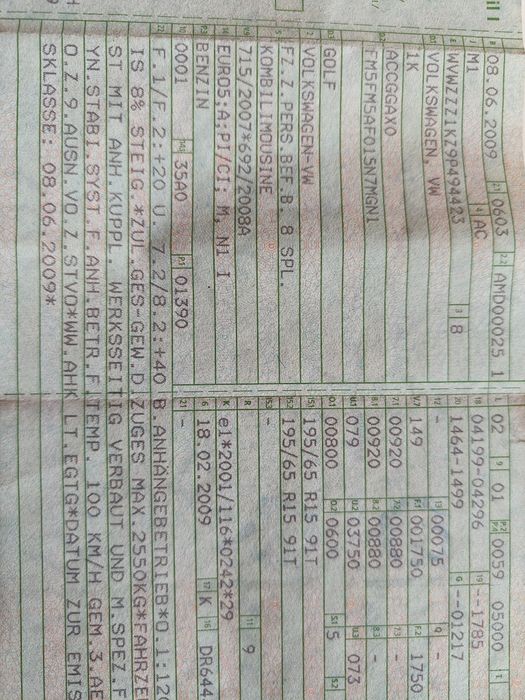 B 08.06.2009 2.1 0603 2.2 AMD00025 1
J M1 4 AC
E WVWZZZ1KZ9P494423 3 8
D.1 VOLKSWAGEN, VW
1K
D.2 ACCGGAX0
FM5FM5AF015N7MGN1
D.3 GOLF
2 VOLKSWAGEN-VW
5 FZ.Z.PERS.BEF.B. 8 SPL.
KOMBILIMOUSINE
V.9 715/2007*692/2008A
14 EURO5;A;PI/CI; M, N1 I
P.3 BENZIN
10 0001 14.1 35A0 P.1 01390
L 02 9 01 P.2 P.4 0059 05000 T
18 04199-04296 19 --1785
20 1464-1499 G --01217
12 - 13 00075 Q -
V.7 149 F.1 001750 F.2 1750
7.1 00920 7.2 00880 7.3 -
8.1 00920 8.2 00880 8.3 -
U.1 079 U.2 03750 U.3 073
O.1 00800 O.2 0600 S.1 5 S.2
15.1 195/65 R15 91T
15.2 195/65 R15 91T
15.3 -
R 11 9
K e1*2001/116*0242*29
6 18.02.2009 17 K 16 DR644
21 -
22 F.1/F.2:+20 U. 7.2/8.2:+40 B.ANHÄNGEBETRIEB*O.1:120
IS 8% STEIG.*ZUL.GES-GEW.D.ZUGES MAX.2550KG*FAHRZE
ST MIT ANH.KUPPL. WERKSSEITIG VERBAUT UND M.SPEZ.F
YN.STABI.SYST F.ANH.BETR.F TEMP. 100 KM/H GEM 3.AE
O.Z.9.AUSN.VO.Z.STVO*WW.AHK LT.EGTG*DATUM ZUR EMIS
SKLASSE: 08.06.2009*